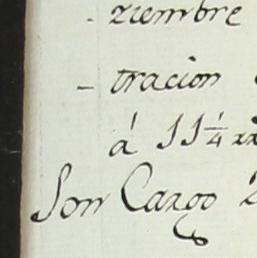 ziembre
tracion
á 11¼
Son Cargo